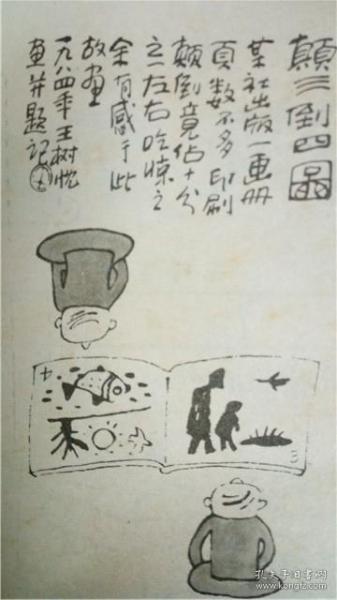 顛三倒四圖
某社出版一画册
页数不多印刷
颠倒竟佔十分
之一左右吃惊之
余有感于此
故画
一九八四年王树忱
画并题记
十
三
孔夫子旧书网
www.kongfz.com